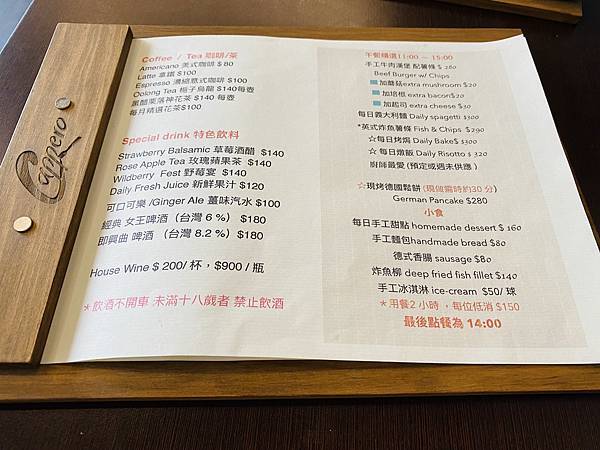 Cappero
Coffee / Tea 咖啡/茶
Americano 美式咖啡 $ 80
Latte 拿鐵 $100
Espresso 濃縮意式咖啡 $100
Oolong Tea 梔子烏龍 $140每壺
黑醋栗洛神花茶 $140 每壺
每月精選花茶$100
Special drink 特色飲料
Strawberry Balsamic 草莓酒醋 $140
Rose Apple Tea 玫瑰蘋果茶 $140
Wildberry Fest 野莓宴 $140
Daily Fresh Juice 新鮮果汁 $120
可口可樂 /Ginger Ale 薑味汽水 $100
經典 女王啤酒（台灣 6 %）$180
即興曲 啤酒 （台灣 8.2 %）$180
House Wine $ 200/ 杯，$900 / 瓶
＊飲酒不開車 未滿十八歲者 禁止飲酒
午餐精選11:00 ~ 15:00
手工牛肉漢堡 配薯條 $ 280
Beef Burger w/ Chips
加蘑菇extra mushroom $20
加培根 extra bacon$20
加起司 extra cheese $30
每日義大利麵 Daily spagetti $300
*英式炸魚薯條 Fish & Chips $290
☆每日烤焗 Daily Bake$ 300
☆ 每日燉飯 Daily Risotto $ 320
廚師最愛 (預定或週末供應 )
☆現烤德國鬆餅 (現做需時約30 分)
German Pancake $280
小食
每日手工甜點 homemade dessert $ 160
手工麵包handmade bread $80
德式香腸 sausage $80
炸魚柳 deep fried fish fillet $140
手工冰淇淋 ice-cream $50/ 球
＊用餐2 小時 ，每位低消 $150
最後點餐為 14:00